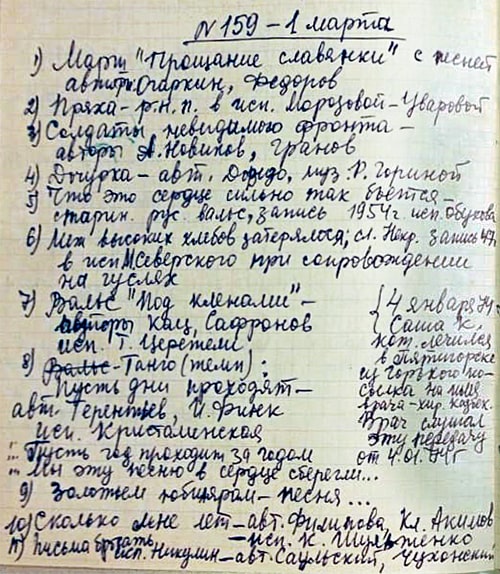 № 159 – 1 марта
1) Марш "Прощание славянки" с песней
авторы Очаркин, Федоров
2) Пряха - р.н.п. в исп. Морозовой-Уваровой
3) Солдаты невидимого фронта –
авторы А. Новиков, Гранов
4) Дочурка – авт. муз. Р. Гориной
5) Что это сердце сильно так бьется –
старин. рус. вальс, запись 1954 г. исп. Обухова
6) Меж высоких хлебов затерялося, сл. Некр. запись 47
в исп. Северского при сопровождении
на гуслях
7) Вальс "Под кленами" –
авторы Кац, Сафронов
исп. Т. Церетели
8) Вальс - Танго (темп) :
Пусть дни проходят –
авт. Терентьев, И. Финк
исп. Кристаленская
... Пусть год проходит за годом
... Мы эту песню в сердце сберегли...
9) Золотым юбилярам – песня...
10) Сколько мне лет – авт. Филипова, Кл. Акимов
– исп. К. Шульженко
11) Письма
исп. Никулин – авт. Саульский, Чухонский
4 января 74
Саша К.
кот. лечился
в Пятигорске
из горького по-
сылка на имя
врача - хир.
Врач слушал
эту передачу
от 4.01.74 г